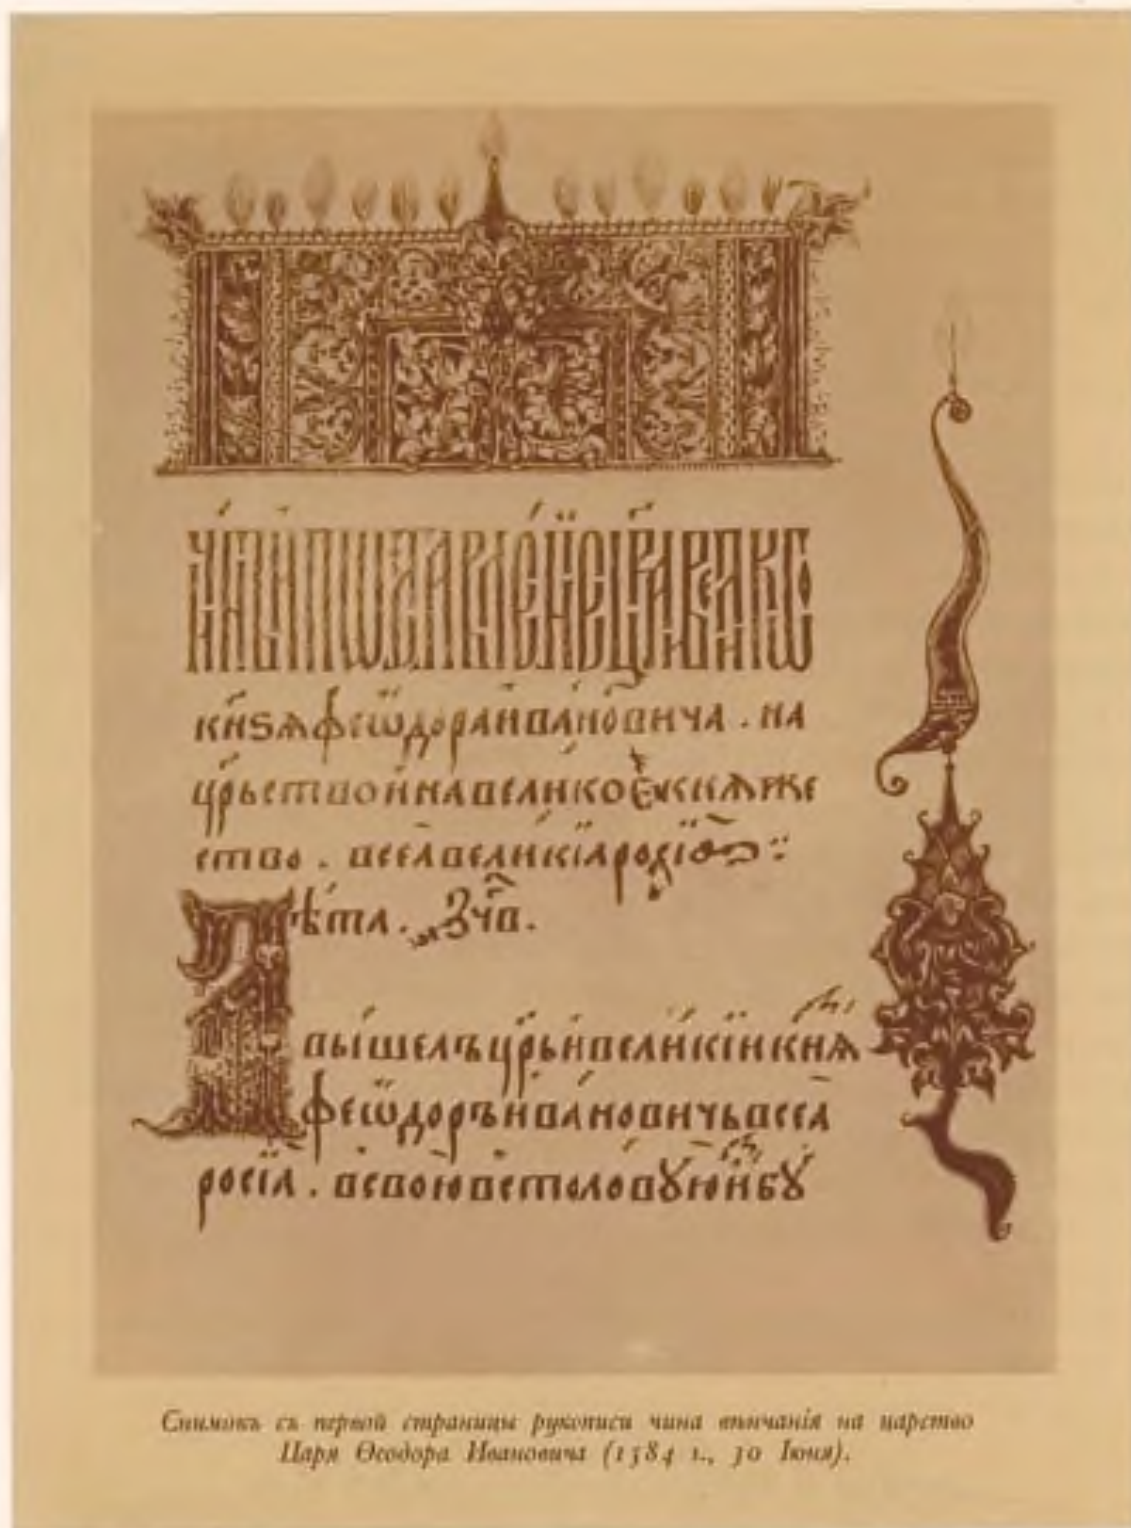 кн҃ѕѧ феѡдора ива́новича . на
цр҃ьство и на великое кнѧже
ство . всеѧ великїѧ росїѧ
лѣта . ҂зч҃в .
вы́шелъ цр҃ь и вели́кїи кнѧ
феѡдоръ ива́новичь всеа
росїѧ . в свою в столовꙋю избꙋ
Снимокъ съ первой страницы рукописи чина вѣнчанія на царство
Царя Ѳеодора Ивановича (1584 г., 30 Іюня).